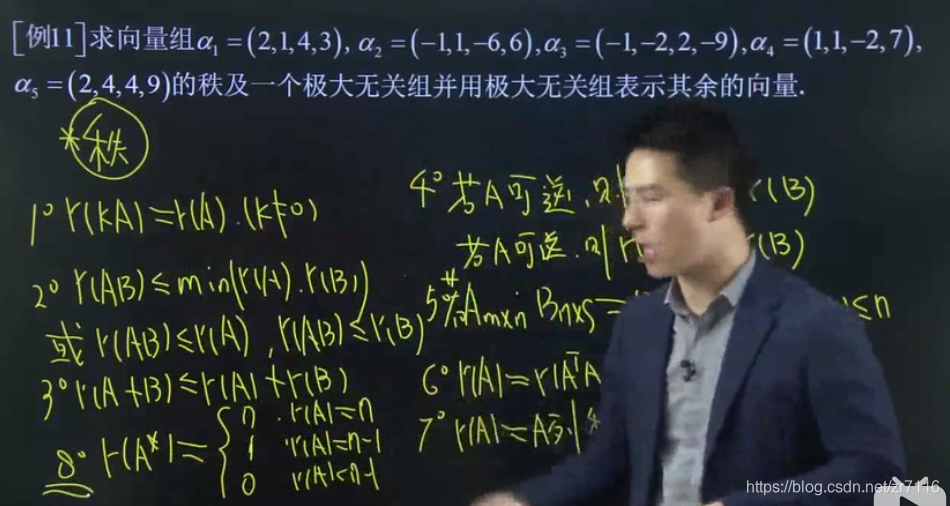 [例11]求向量组α₁=(2,1,4,3), α₂=(-1,1,-6,6),α₃=(-1,-2,2,-9),α₄=(1,1,-2,7),
α₅=(2,4,4,9)的秩及一个极大无关组并用极大无关组表示其余的向量.
*秩
1° r(kA)=r(A).(k≠0)
2° r(AB)≤min(r(A).r(B))
或 r(AB)≤r(A), r(AB)≤r(B)
3° r(A+B)≤r(A)+r(B)
8° r(A*)={n r(A)=n
1 r(A)=n-1
0 r(A)<n-1
4° 若A可逆, 则 r(B)
若A可逆.则 r(B)
5° Aₘₓₙ Bₙₓₛ= ≤n
6° r(A)=r(AᵀA
7° r(A)=A列
https://blog.csdn.net/zr7116